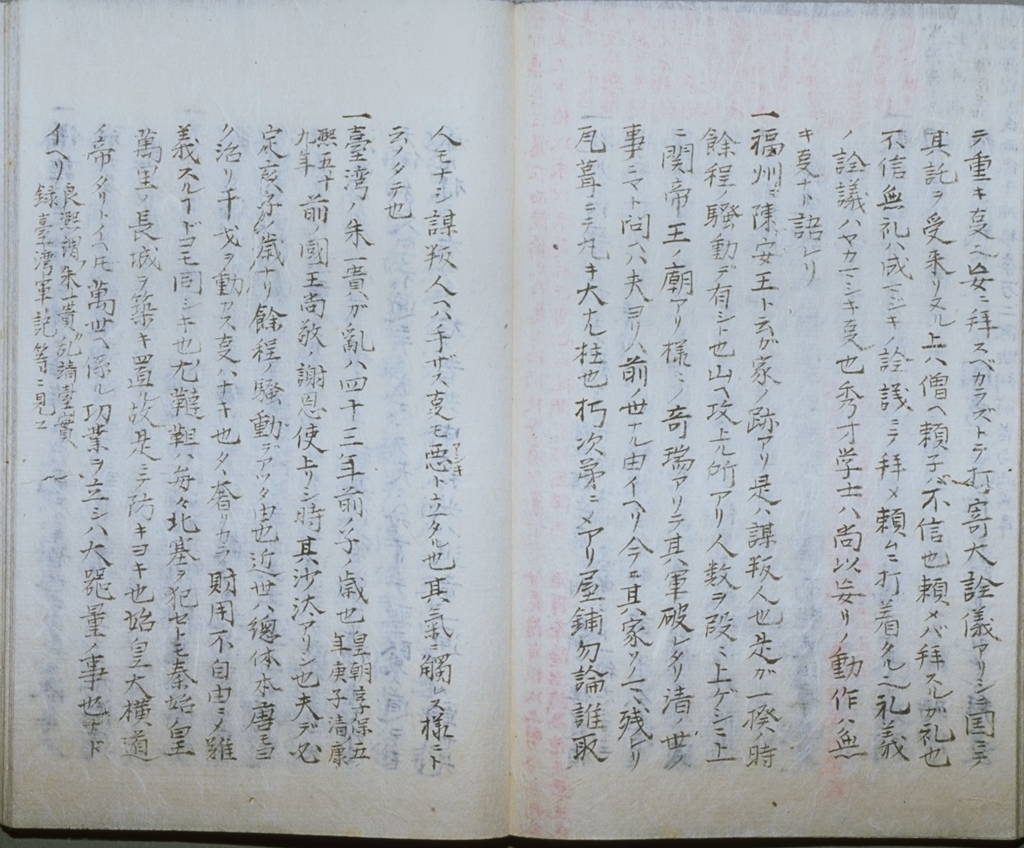 テ重キ支ヘ妄ニ拜スベカラズトテ打寄大詮儀アリシ国ニテ
其託ヲ受来リスル上ハ僧ヘ頼子バ不信也頼メバ拜スルガ礼也
不信無礼ハ成マジキノ詮議ニテ拜メ頼ムニ打着タル礼義
ノ詮議ハヤカマシキ支也秀才学士ハ尚以妄リノ動作ハ無
キ支ナド語レリ
一福州ニ陳安王ト云ガ家ノ跡アリ是ハ謀叛人也是ガ一揆ノ時
餘程騒動デ有シト也山ヘ攻上ル所アリ人数ヲ段々上ゲシニ上
ニ関帝王ノ廟アリ様々ノ奇瑞アリテ其軍破レタリ清ノ世ノ
事ニマト問ハハ夫ヨリハ前ノ世ナル由イヘリ今ニ其家ソノマヽ残レリ
瓦葺ニテ丸キ大ナル柱也朽次第ニメアリ屋鋪勿論誰取
人モナシ謀叛人ヘハ手ザス支モ悪ト立タル也其氣ニ觸レヌ様ニト
テノタテ也
一臺湾ノ朱一貴ガ亂ハ四十三年前ノ子ノ歳也 皇朝享保五年庚子清康
熙五十九年 前ノ國王尚敬ノ謝恩使上リシ時其沙汰アリシ也夫デ必
定亥子ノ歳ナリ餘程ノ騒動デアツタ由也近世ハ總体本唐ヨ
ク治リ干戈ヲ動カス支ハナキ也タヾ奢リカラ財用不自由ニメ難
義スルヿドヨモ同シヿ也尤韃靼ハ毎々北塞ヲ犯セトモ秦始皇
萬里ノ長城ヲ築キ置レ故是ニテ防キヨキ也始皇大横道
ノ帝タリトイヘ圧萬世ヘ係ル功業ヲ立シハ大器量ノ事也ナド
イヘリ 良熙謂朱一貴記靖臺實
録臺湾軍記等ニ見ユ